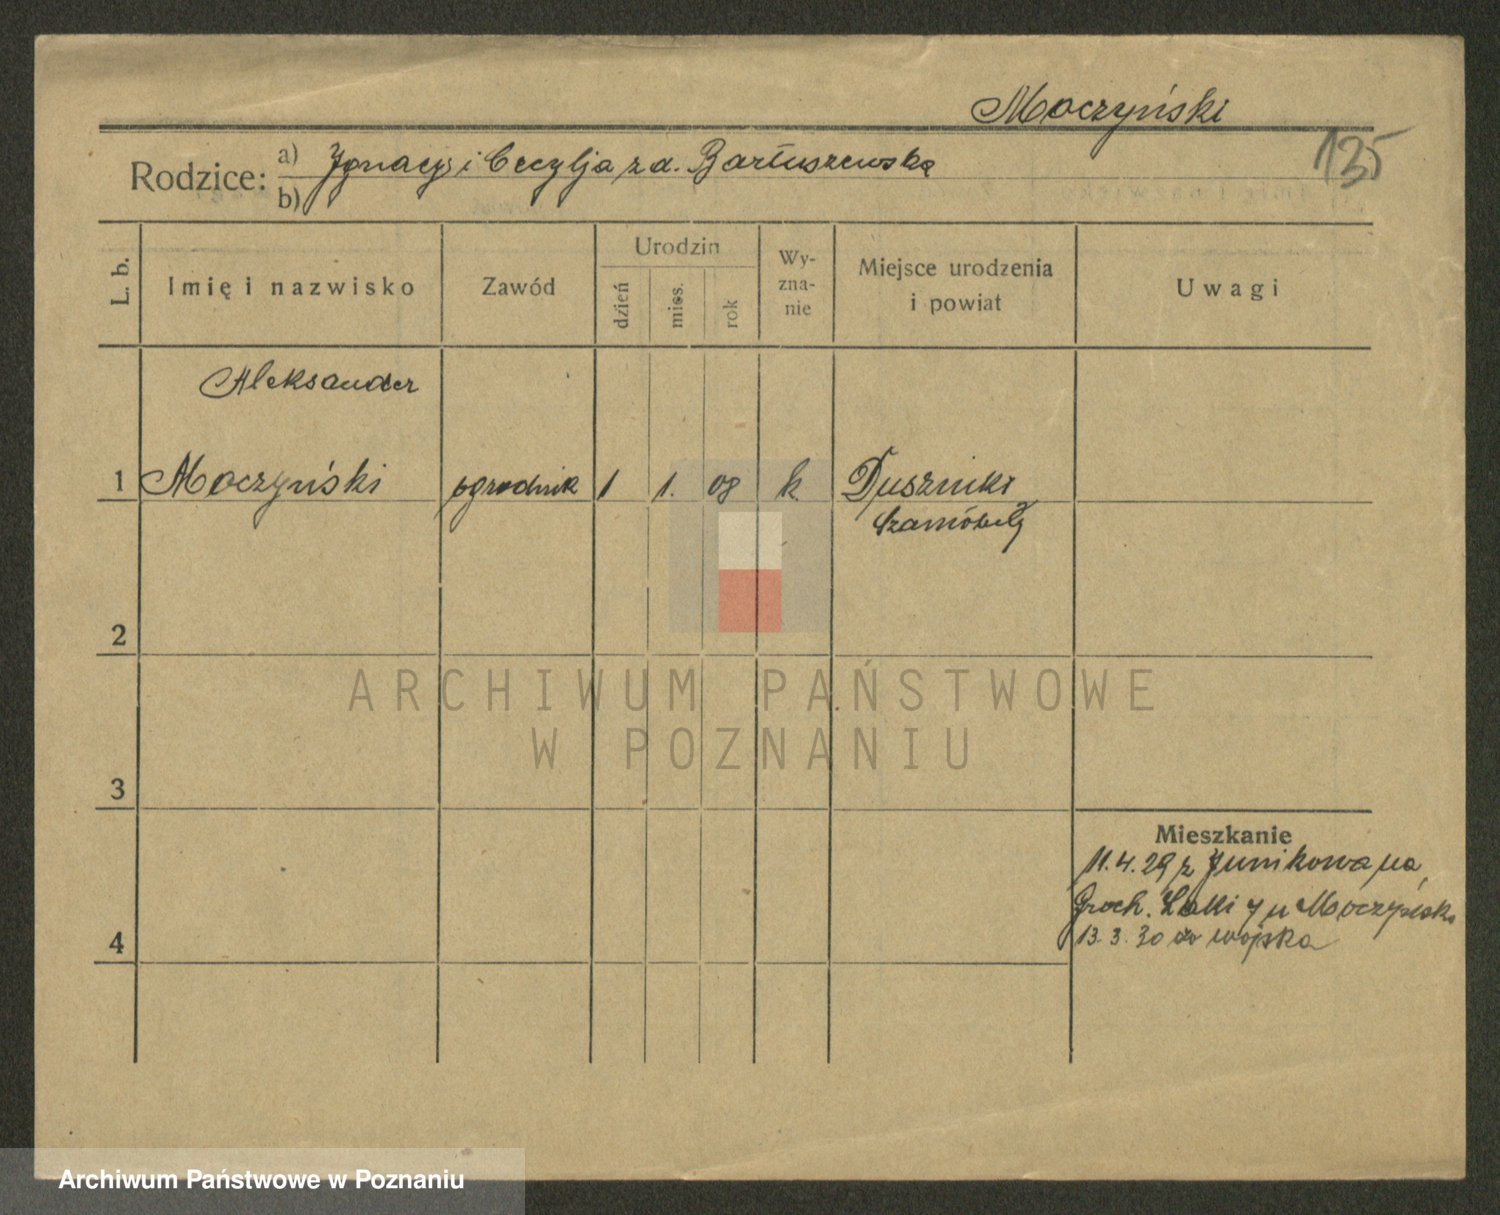 Moczyński
135
Rodzice:
a) Ignacy i Cecylja z d. Bartuszewska
b)
L. b.
Imię i nazwisko
Zawód
Urodzin
dzień
mies.
rok
Wy-
zna-
nie
Miejsce urodzenia
i powiat
Uwagi
Aleksander
1 Moczyński ogrodnik 1 1. 08 k. Duszniki
Szamotuły
2
ARCHIWUM PAŃSTWOWE
W POZNANIU
3
Mieszkanie
11.4.29 z Junikowa na
Groch. Łąki 7 u Moczyńsk.
4
13.3.30 do wojska
Archiwum Państwowe w Poznaniu